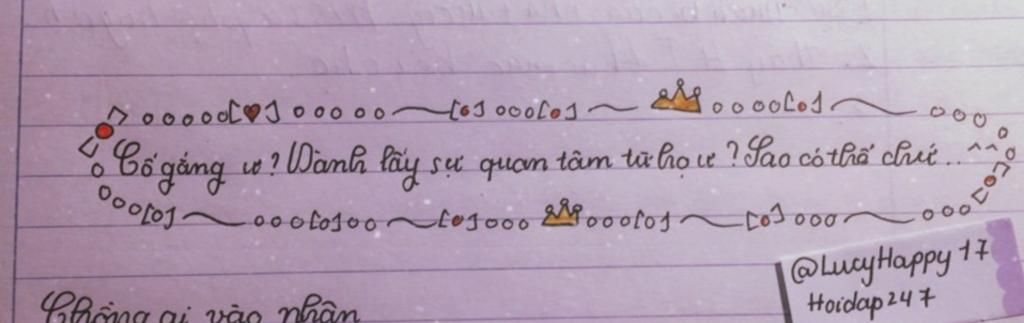 Cố gắng ư? Dành lấy sự quan tâm từ họ ư? Sao có thể chứ.. ^^
@LucyHappy17
Hoidap247
Chồng ai vào nhận